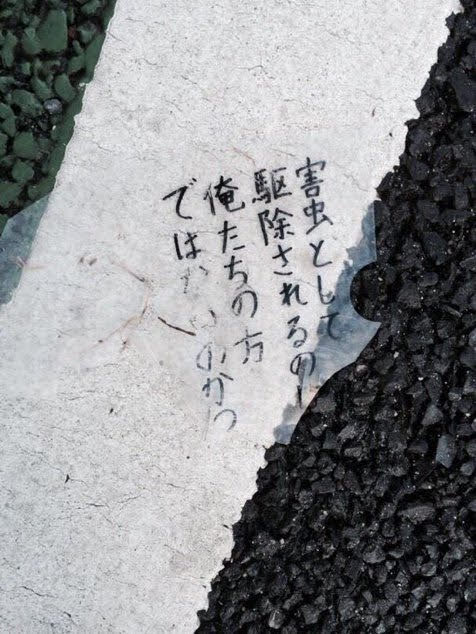 害虫として
駆除されるのは
俺たちの方
ではないのかっ